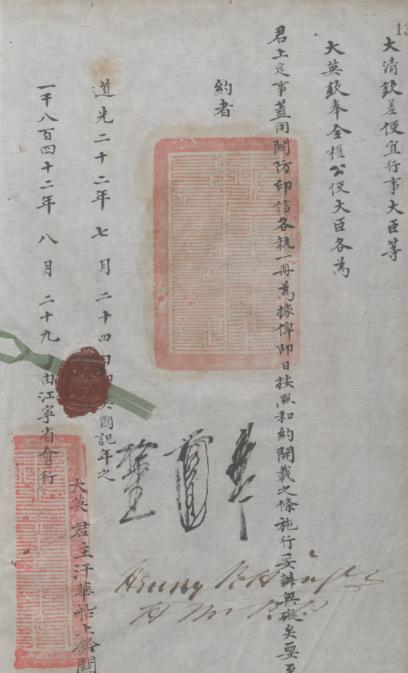 大清欽差便宜行事大臣等
大英欽奉全權公使大臣各為
君上定事蓋用關防印信各執一冊為據俾即日按照和約開載之條施行妥辦無礙矣要至
約者
道光二十二年七月二十四日即英國記年之
一千八百四十二年八月二十九日由江寧省會行
大英君主汗華船上鈐關
Henry Pottinger
H. M. Pl.
13